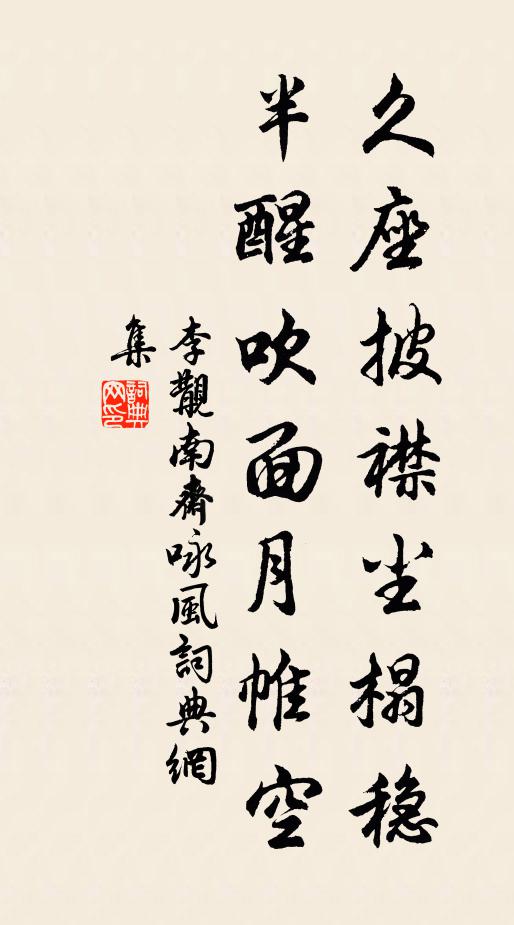 久座披襟尘榻稳
半醒吹面月帷空
李觀南齋咏風詞典網
集
詞典
网印